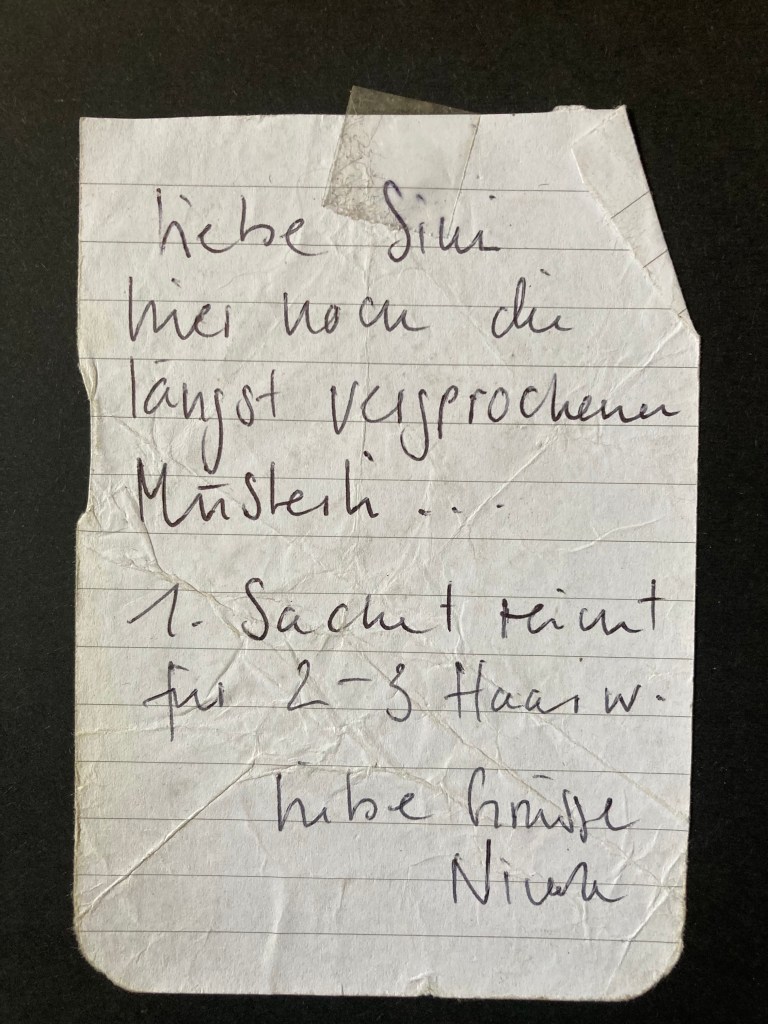 Liebe Simi
hier noch die
längst versprochenen
Müsterli ...
1. Sachet reicht
für 2-3 Haarw.
Liebe Grüsse
Nicole